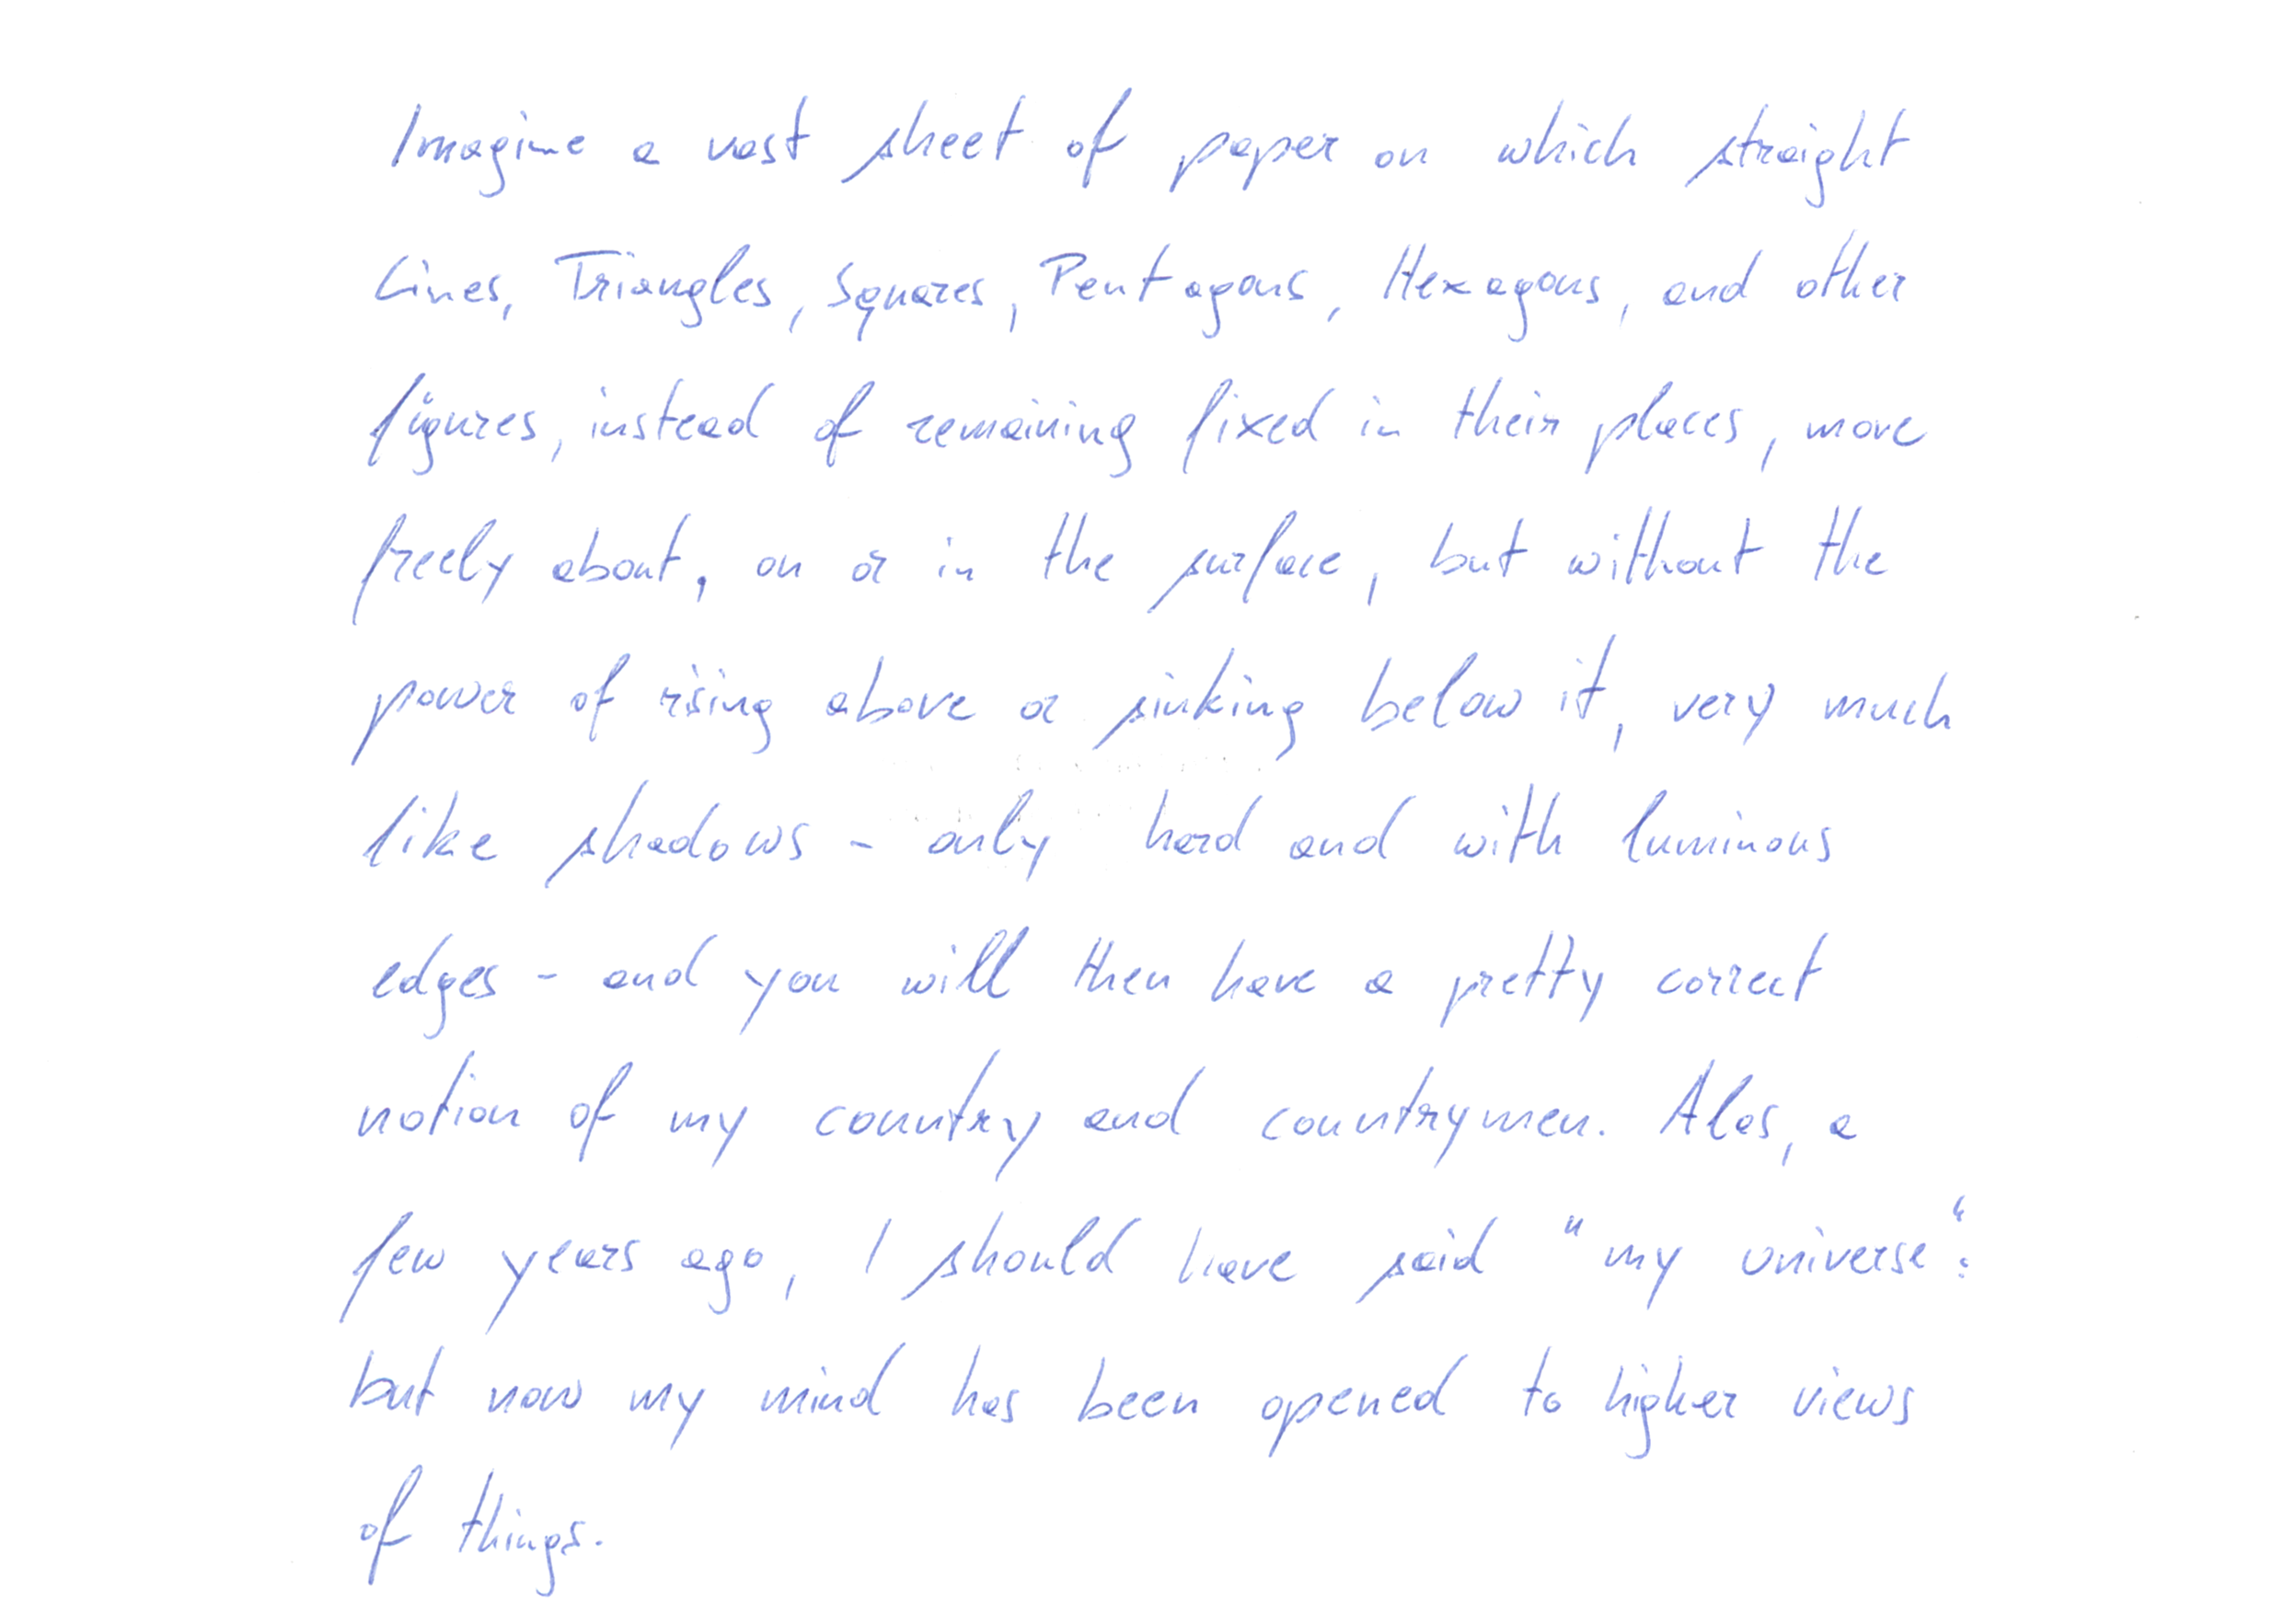 Imagine a vast sheet of paper on which straight
Lines, Triangles, Squares, Pentagons, Hexagons, and other
figures, instead of remaining fixed in their places, move
freely about, on or in the surface, but without the
power of rising above or sinking below it, very much
like shadows - only hard and with luminous
edges - and you will then have a pretty correct
notion of my country and countrymen. Alas, a
few years ago, I should have said "my universe":
but now my mind has been opened to higher views
of things.